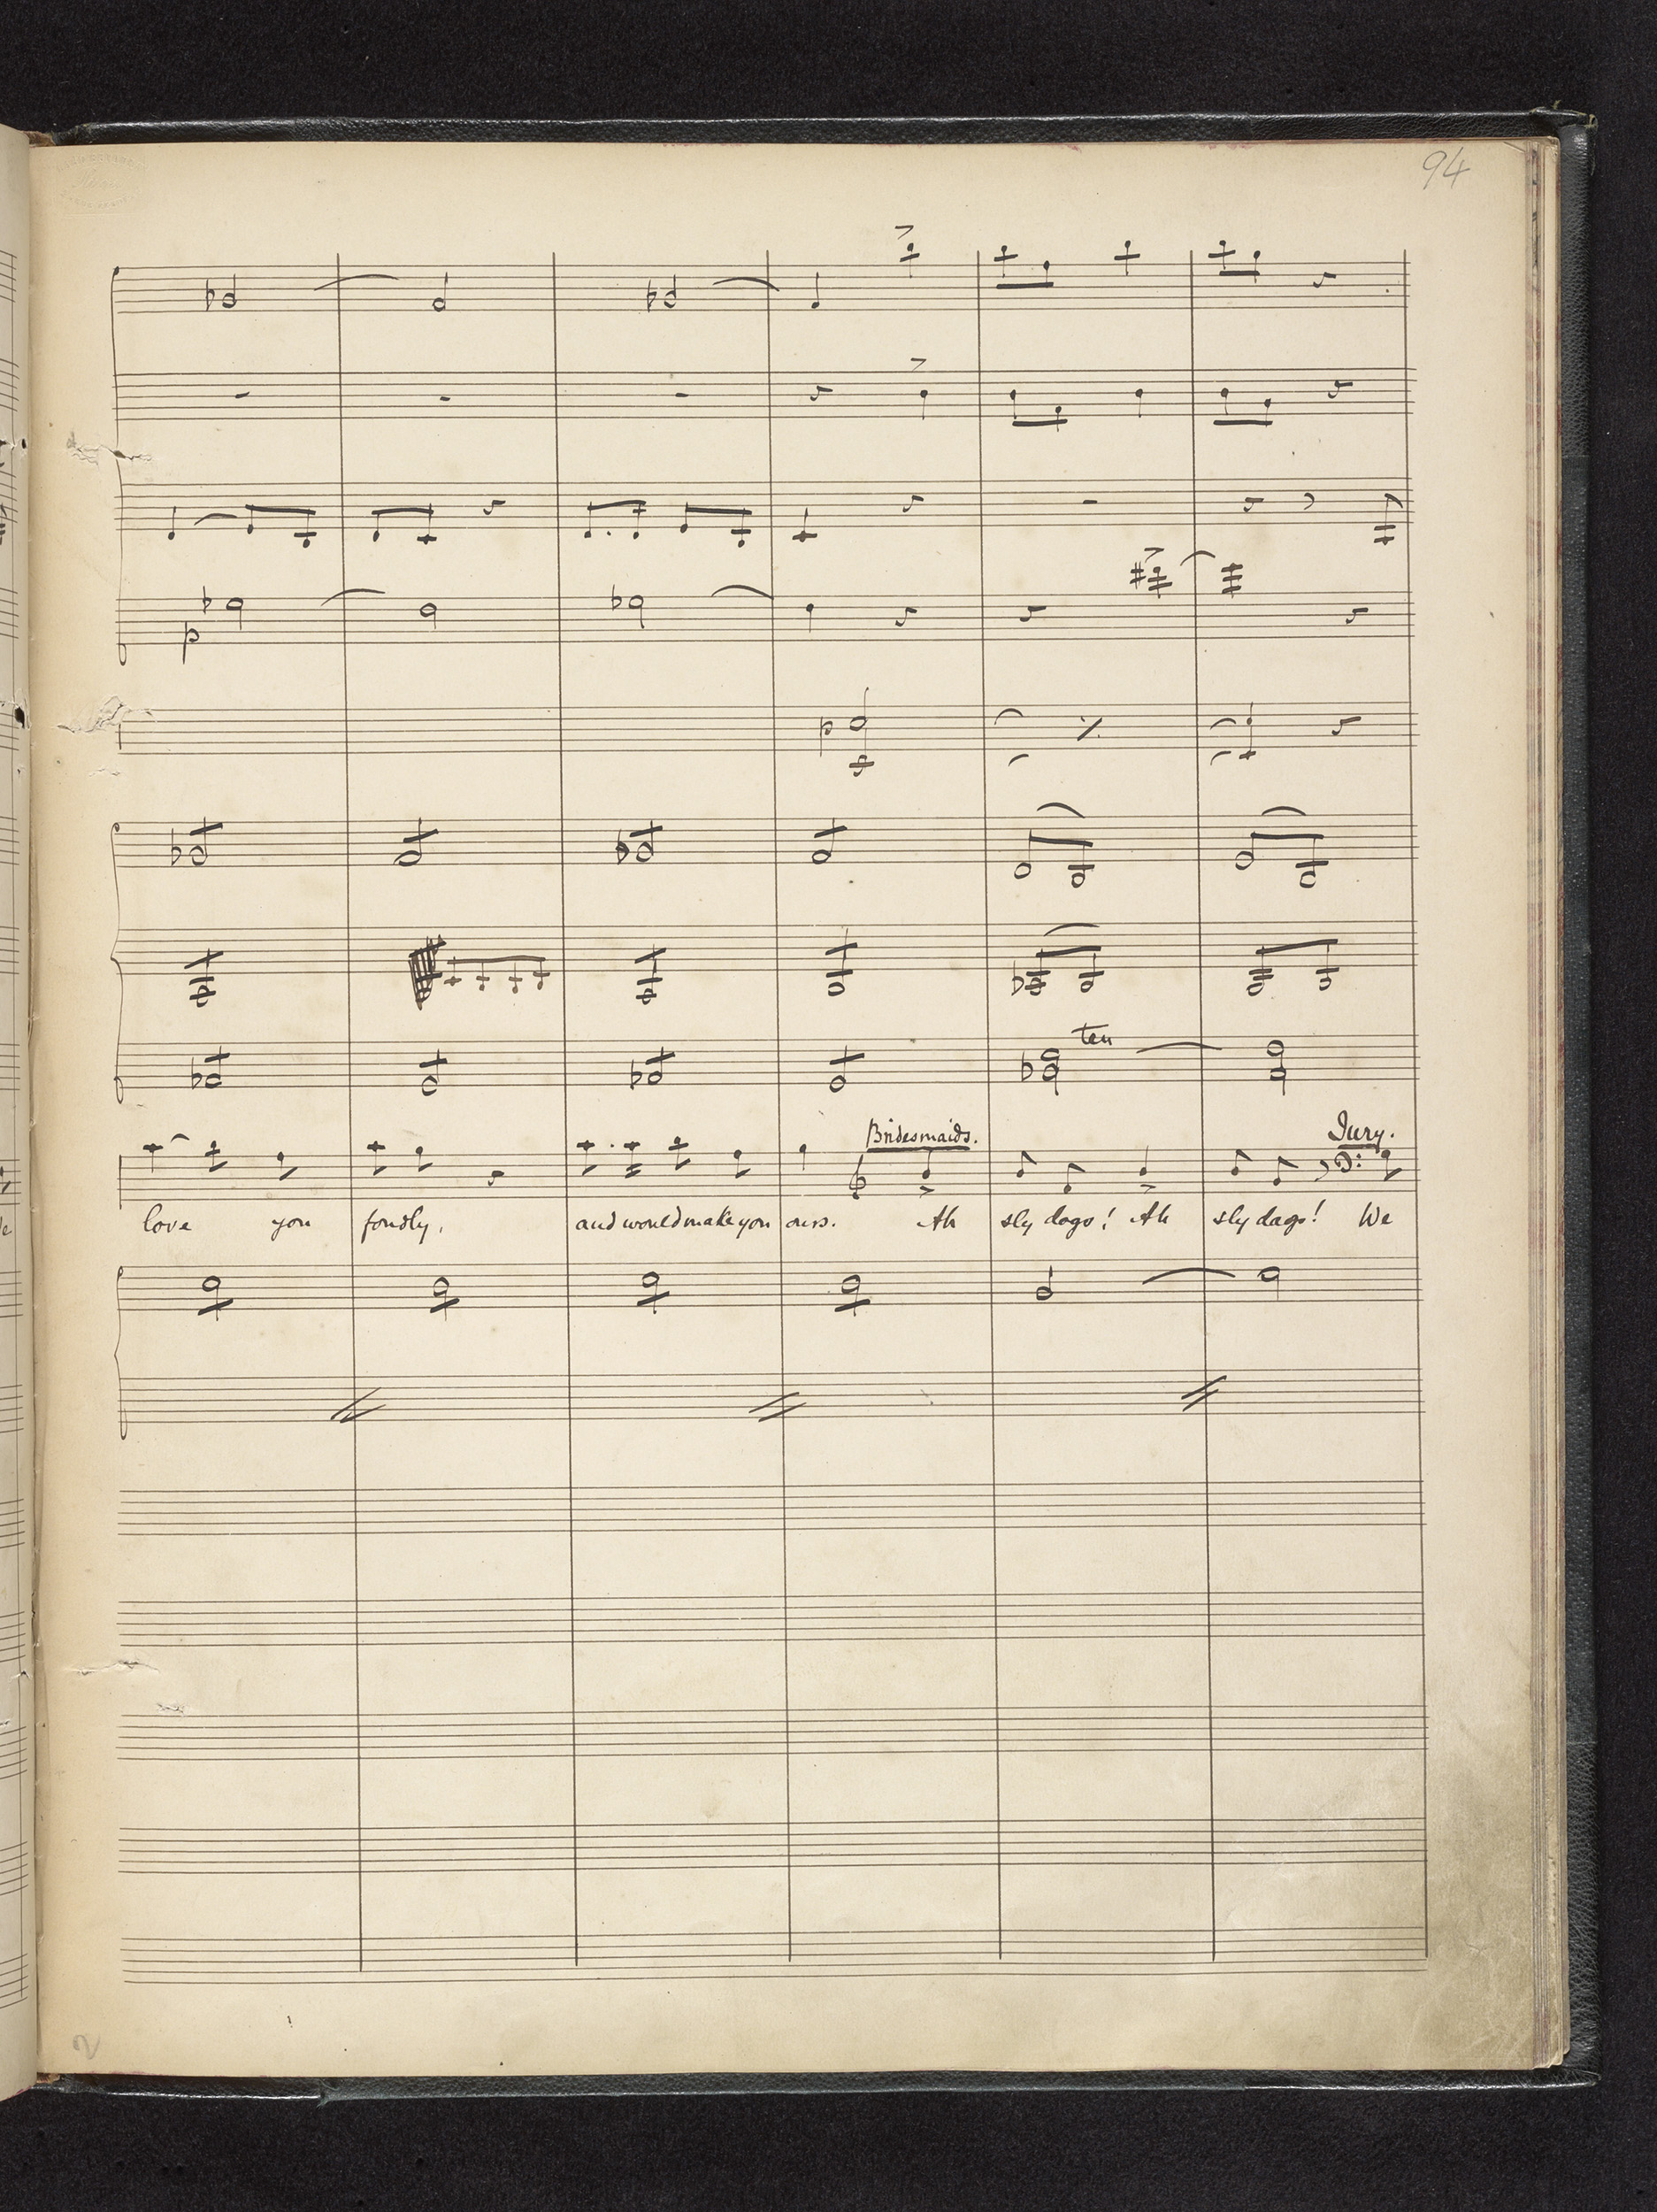 94
p
p
ten
Bridesmaids.
Jury.
love you fondly, and would make you ours. Ah sly dogs! Ah sly dogs! We
2